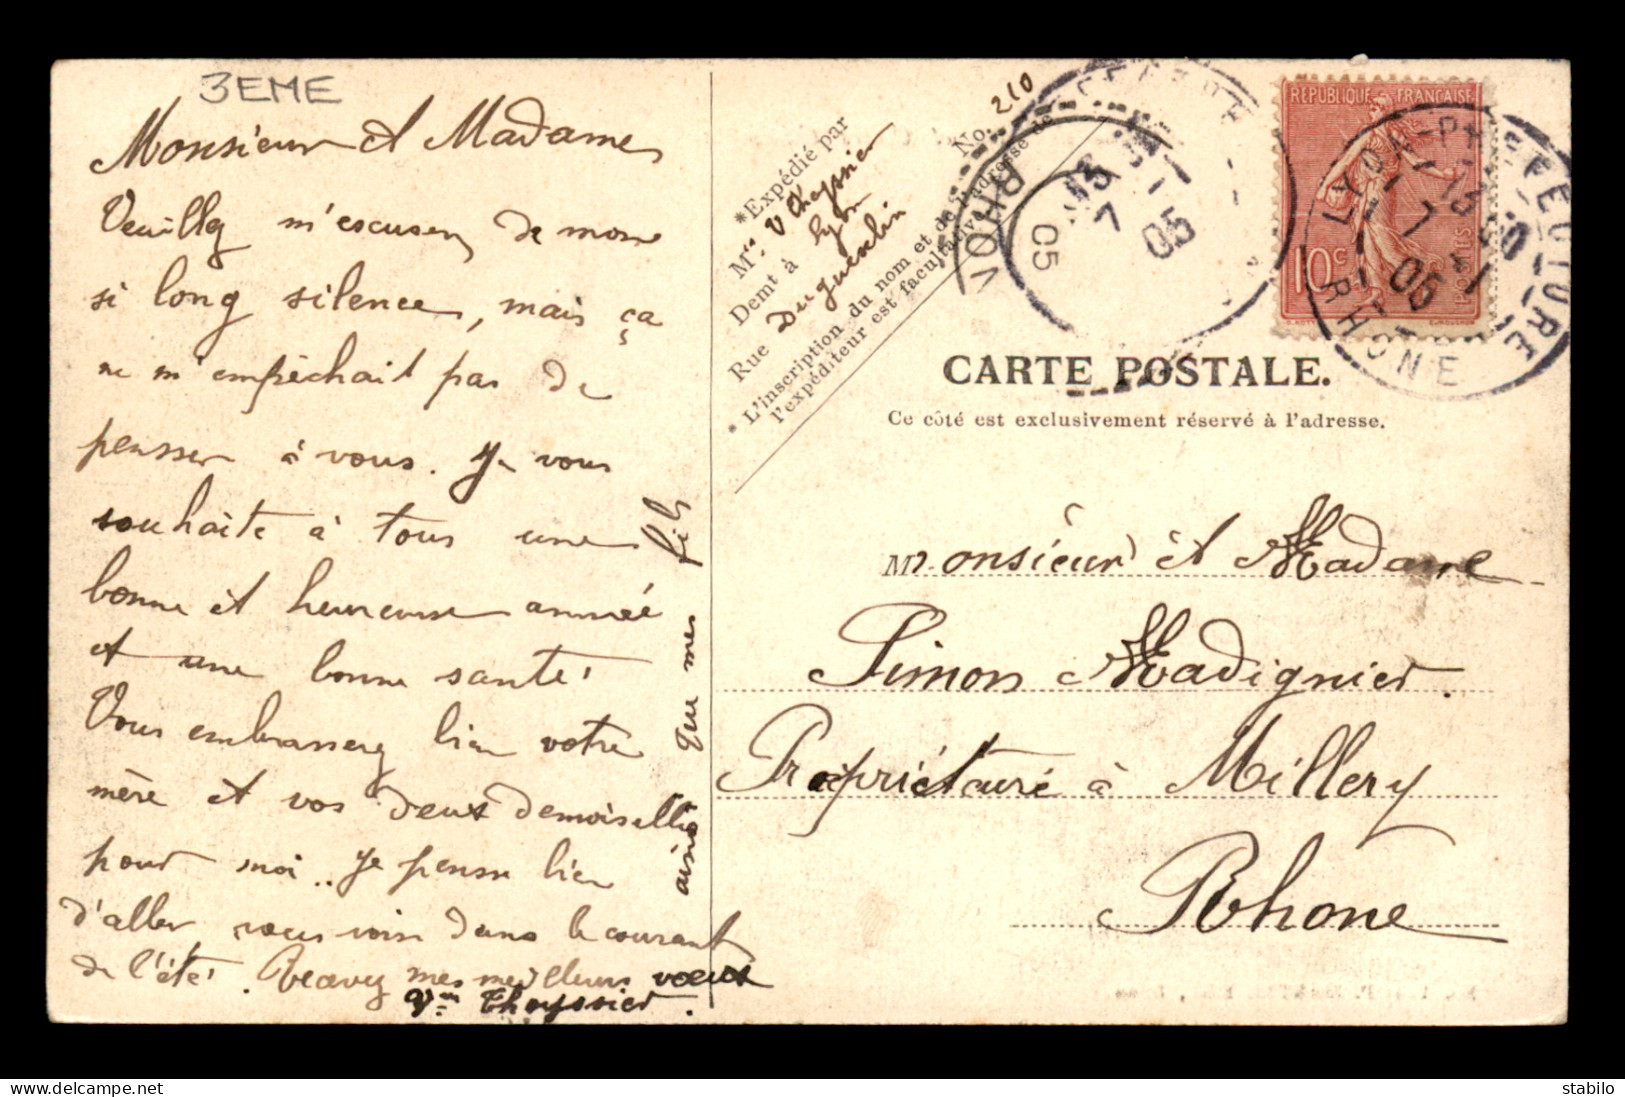 3EME
Monsieur et Madame
Veuillez m'escuser de mon
si long silence, mais ça
ne m'empêchait pas de
pensser à vous. Je vous
souhaite à tous une
bonne et heureuse année
et une bonne santé
Vous embrasserez bien votre
mère et vos deux demoiselles
pour moi.. Je pense bien
d'aller vous voir dans le courant
de l'été. Recevez mes meilleurs vœux
Vve Thoyssier.
ainsi que mes fils
*Expédié par
Mr V Thoyssier
Demt à Lyon
Rue Duguesclin
No. 210
* L'inscription du nom et de l'adresse de
l'expéditeur est facultative.
RHONE
13
7
05
05
REPUBLIQUE FRANÇAISE
10c
POSTES
LYON-PREFECTURE
7 - 1
05
RHONE
CARTE POSTALE.
Ce côté est exclusivement réservé à l'adresse.
Monsieur et Madame
Simon Madignier.
Propriétaire à Millery
Rhone
delcampe.net
stabilo